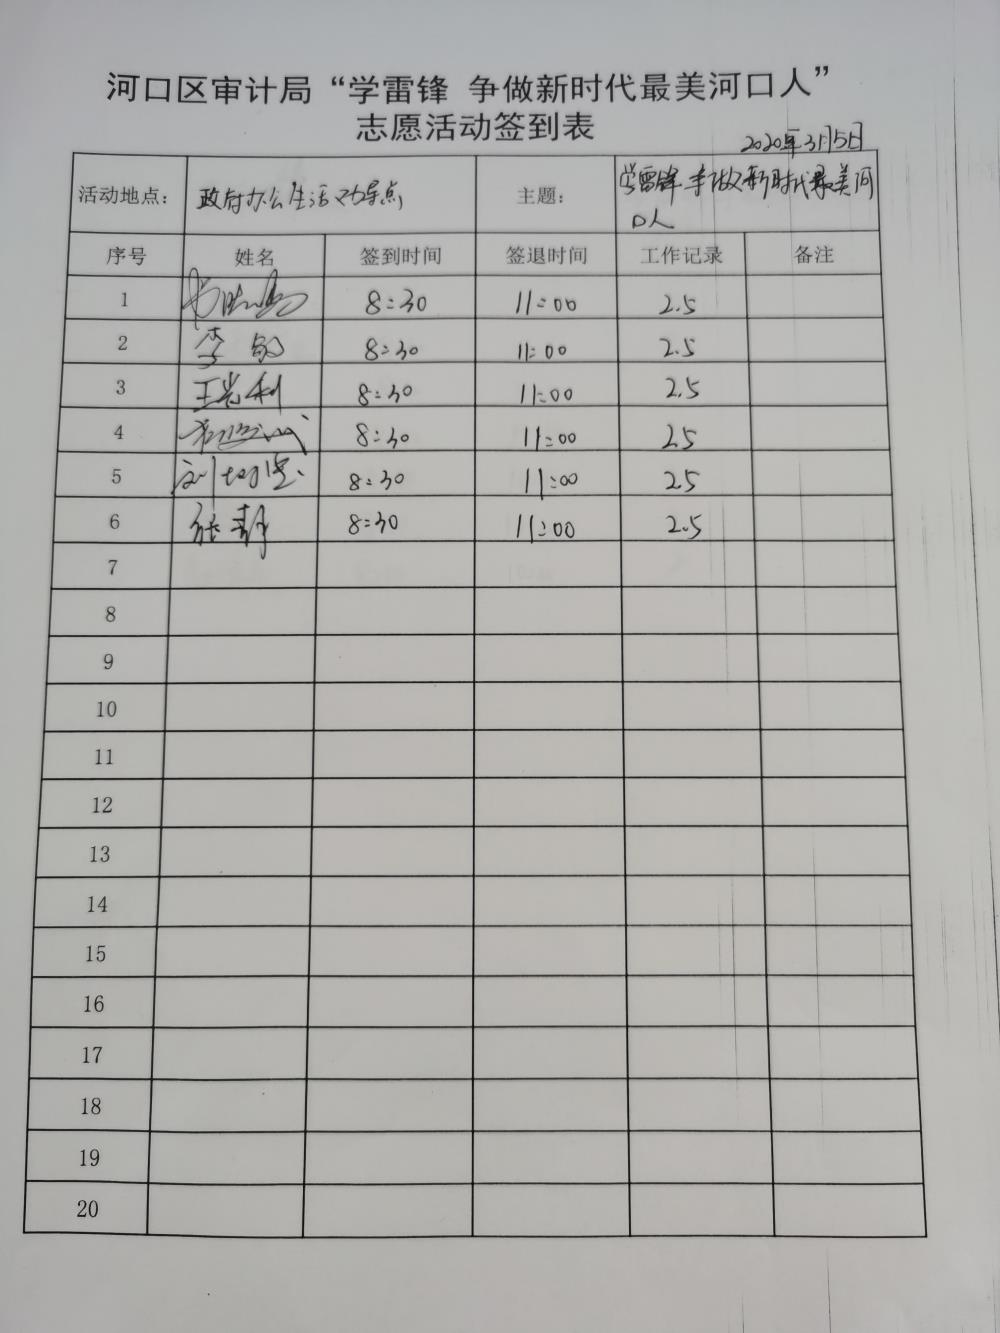 河口区审计局“学雷锋 争做新时代最美河口人”
志愿活动签到表
2020年3月5日
活动地点： 政府办公生活 主题： 学雷锋 争做新时代最美河
口人
序号 姓名 签到时间 签退时间 工作记录 备注
1 8:30 11:00 2.5
2 李敏 8:30 11:00 2.5
3 王光利 8:30 11:00 2.5
4 8:30 11:00 2.5
5 刘 8:30 11:00 2.5
6 张静 8:30 11:00 2.5
7
8
9
10
11
12
13
14
15
16
17
18
19
20